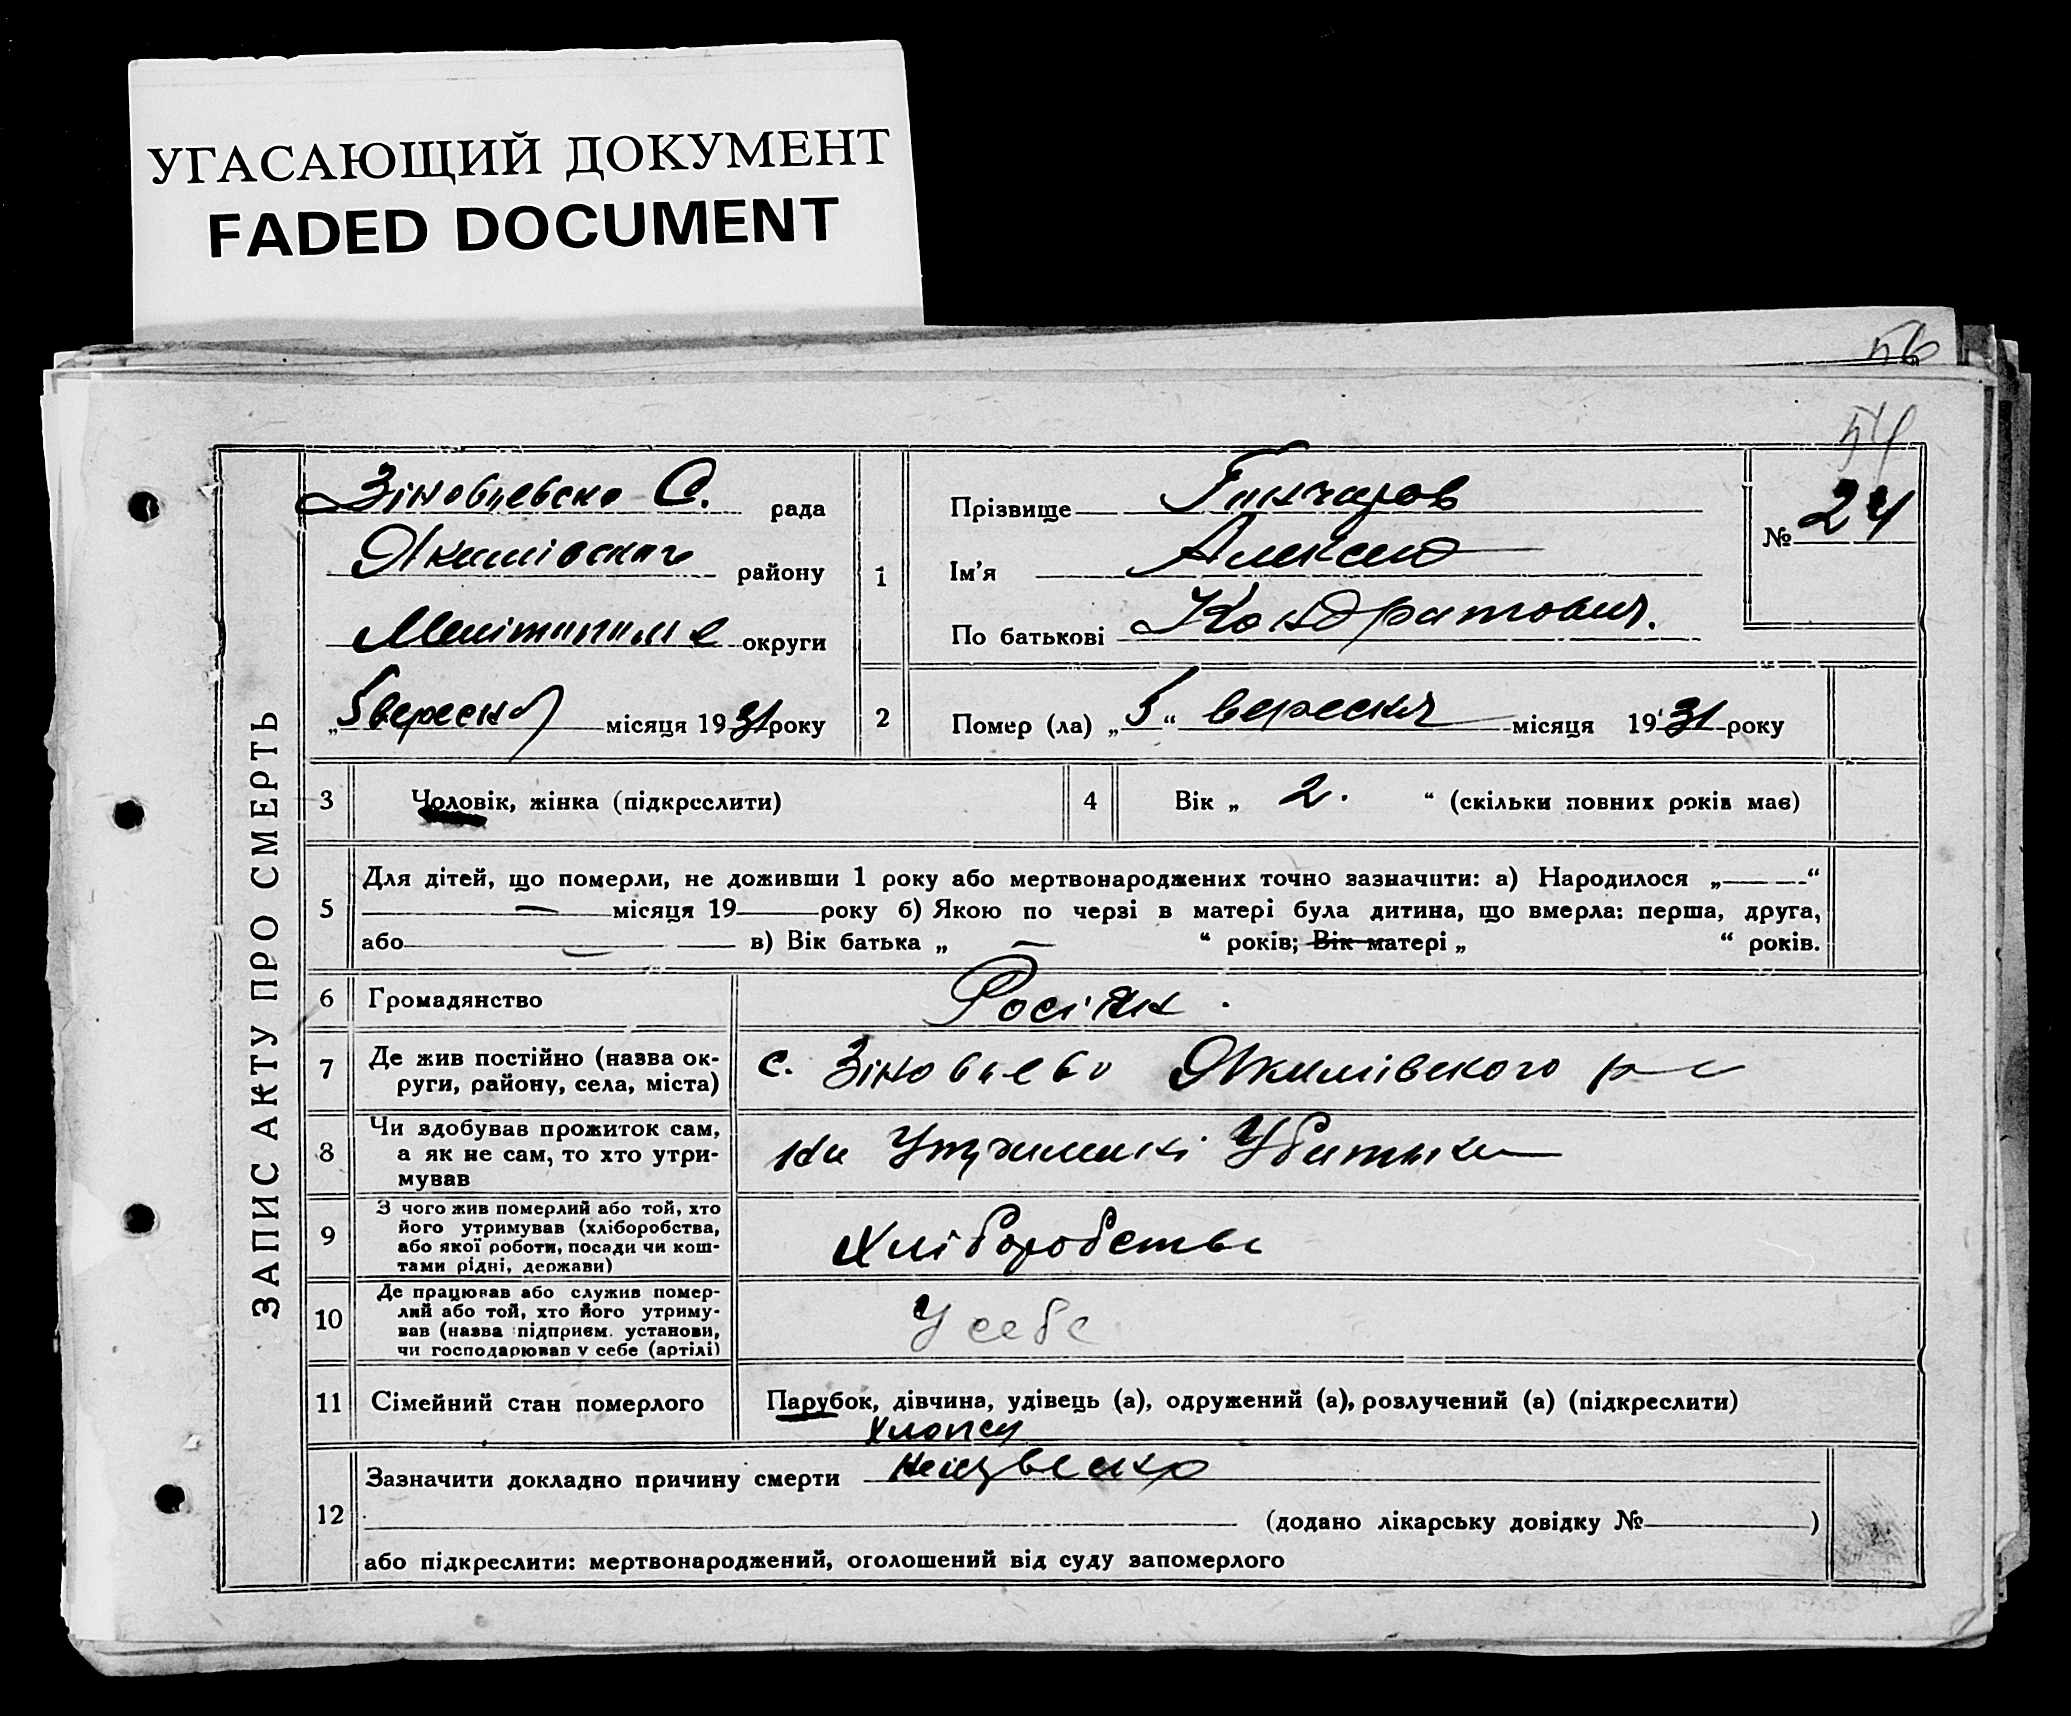 УГАСАЮЩИЙ ДОКУМЕНТ
FADED DOCUMENT
56
54
ЗАПИС АКТУ ПРО СМЕРТЬ
Зіновцевско С. рада
Якимівского району
округи
„5 вересня місяця 1931 року
1
Прізвище Гончаров
Ім'я Алексей
По батькові Кондратович.
№ 24
2
Помер (ла) „5“ вересня місяця 1931 року
3 Чоловік, жінка (підкреслити)
4 Вік „ 2. “ (скільки повних років має)
5
Для дітей, що померли, не доживши 1 року або мертвонароджених точно зазначити: а) Народилося „— —“
— місяця 19— року б) Якою по черзі в матері була дитина, що вмерла: перша, друга,
або — в) Вік батька „ — “ років; Вік матері „ “ років.
6 Громадянство Росіян.
7 Де жив постійно (назва ок-
руги, району, села, міста)
с. Зіновьево Якимівского р
8 Чи здобував прожиток сам,
а як не сам, то хто утри-
мував
на Утриманні
9 З чого жив померлий або той, хто
його утримував (хліборобства,
або якої роботи, посади чи кош-
тами рідні, держави)
Хліборобства
10 Де працював або служив помер-
лий або той, хто його утриму-
вав (назва підприєм. установи,
чи господарював у себе (артілі)
У себе
11 Сімейний стан померлого
Парубок, дівчина, удівець (а), одружений (а), розлучений (а) (підкреслити)
Хлопец
12
Зазначити докладно причину смерти
(додано лікарську довідку № )
або підкреслити: мертвонароджений, оголошений від суду запомерлого